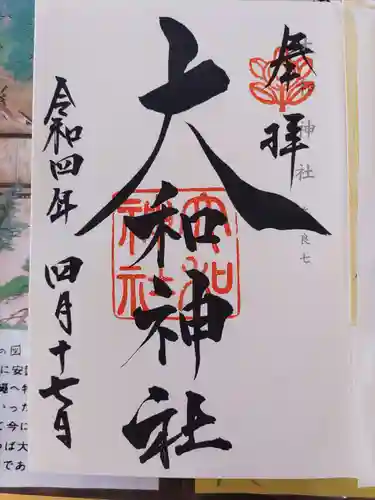 奉拝
大和神社
令和四年四月十七日
大和
神社
の図
に安
へ
いった
て今に
ば大
であ